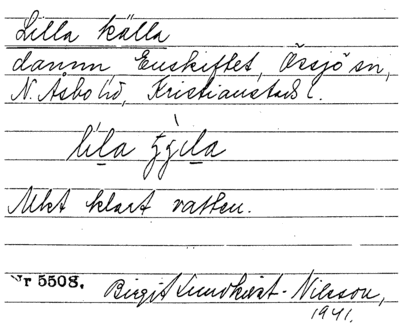 Lilla källa
damm Enskiftet, Örsjö sn,
N. Åsbo hd, Kristianstads l.
lila
Mkt klart vatten.
Nr 5508. Birgit Lundkvist-Nilsson,
1941.